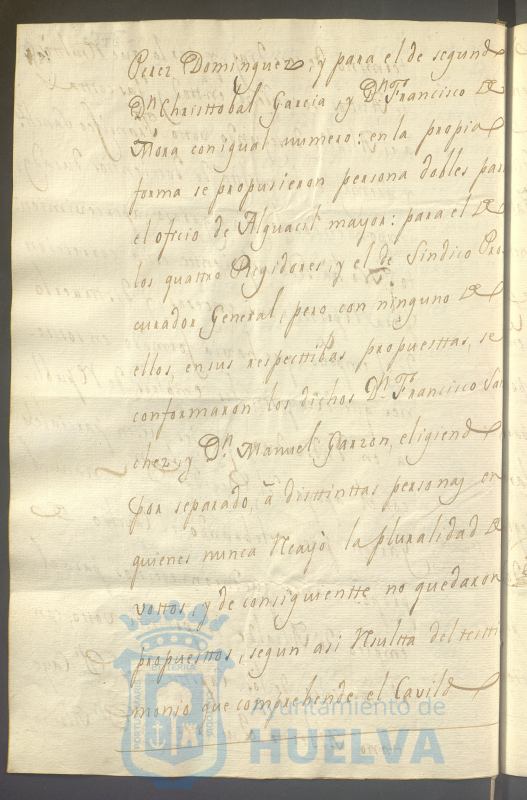 Perez Dominguez, y para el de segundo
Dn. Christtobal Garcia, y Dn. Francisco de
Mora con igual numero: en la propia
forma se propusieron persona dobles para
el oficio de Alguacil mayor: para el de
los quattro Regidores, y el de Sindico Pro
curador General, pero, con ninguno de
ellos, en sus respecttibas propuesttas, se
conformaron los dichos Dn. Francisco San
chez, y Dn. Manuel Garzon, eligiendo
por separado, à disttinttas personas en
quienes nunca Recayò la pluralidad de
vottos, y de consiguientte no quedaron
propuesttos, segun asi Resultta del testti
monio que comprehende el Cavildo
Ayuntamiento de
HUELVA